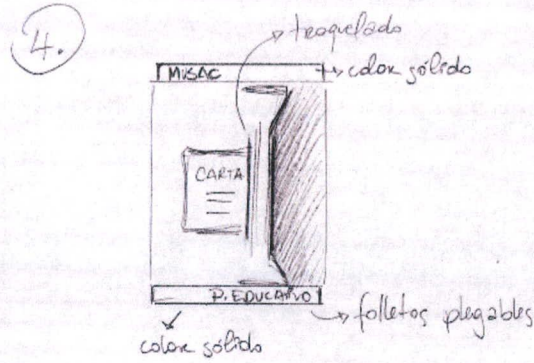 4.
troquelado
color sólido
MUSAC
CARTA
P. EDUCATIVO
folletos plegables
color sólido